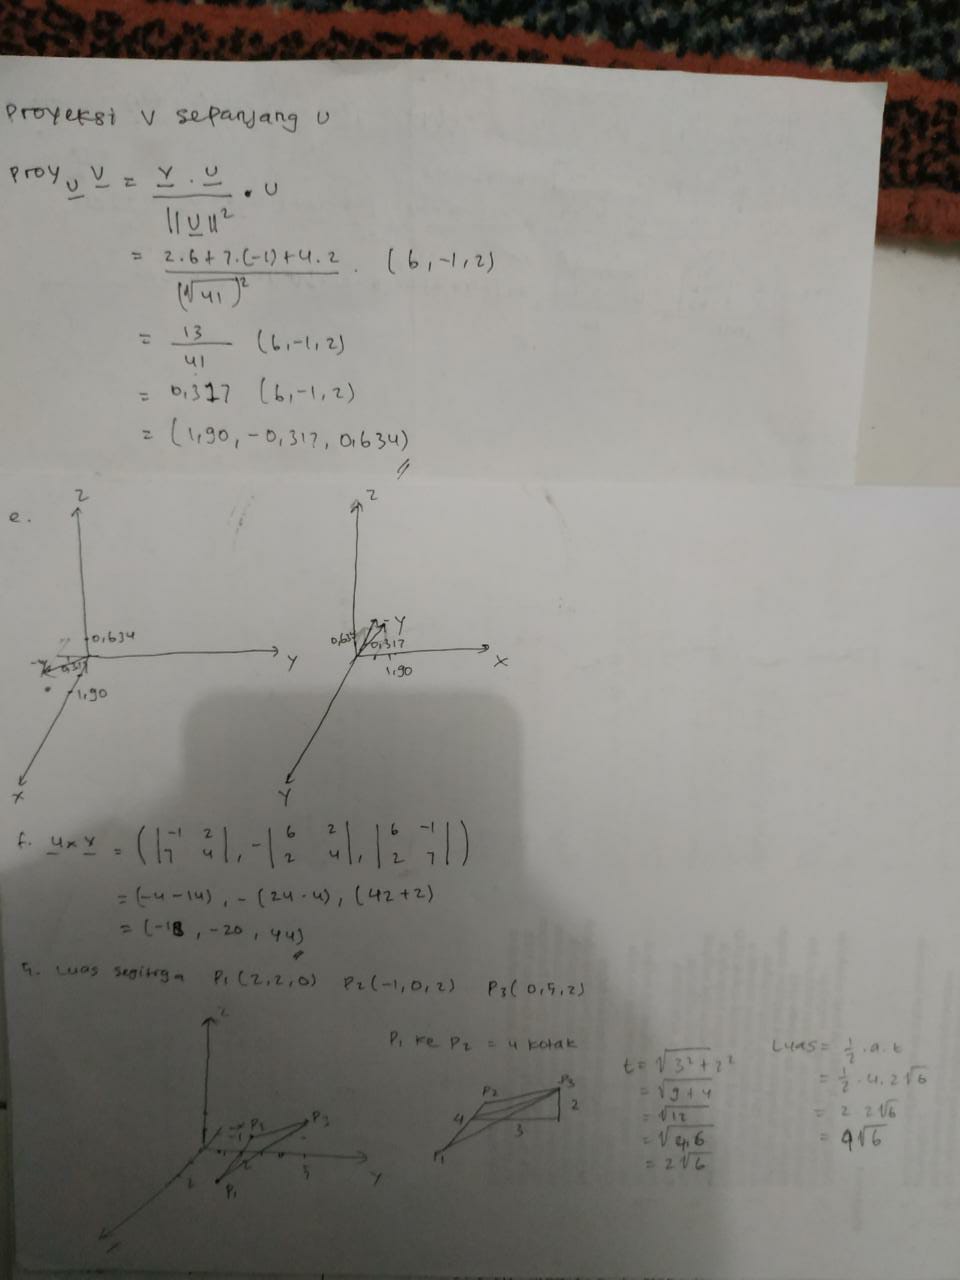 Proyeksi v sepanjang u
Proy u v = v . u / ||u||² • u
= 2.6+7.(-1)+4.2 / (√41)² . (6,-1,2)
= 13/41 (6,-1,2)
= 0,317 (6,-1,2)
= (1,90, -0,317, 0,634)
e.
Z Z
0,634 0,634 -Y
Y 0,317 X
-Y 0,317 1,90
1,90
X Y
f. u x v = (|-1 2; 7 4|, -|6 2; 2 4|, |6 -1; 2 7|)
= (-4-14), -(24-4), (42+2)
= (-18, -20, 44)
Luas segitiga P1(2,2,0) P2(-1,0,2) P3(0,5,2)
Z
P1 ke P2 = 4 kotak
P2 P3
-1
2 2 5 Y
P1
P2 P3
4 3 2
P1
t = √3²+2²
= √9+4
= √12
= √4,6
= 2√6
Luas = 1/2 . a. t
= 1/2 . 4. 2√6
= 2 2√6
= 4√6